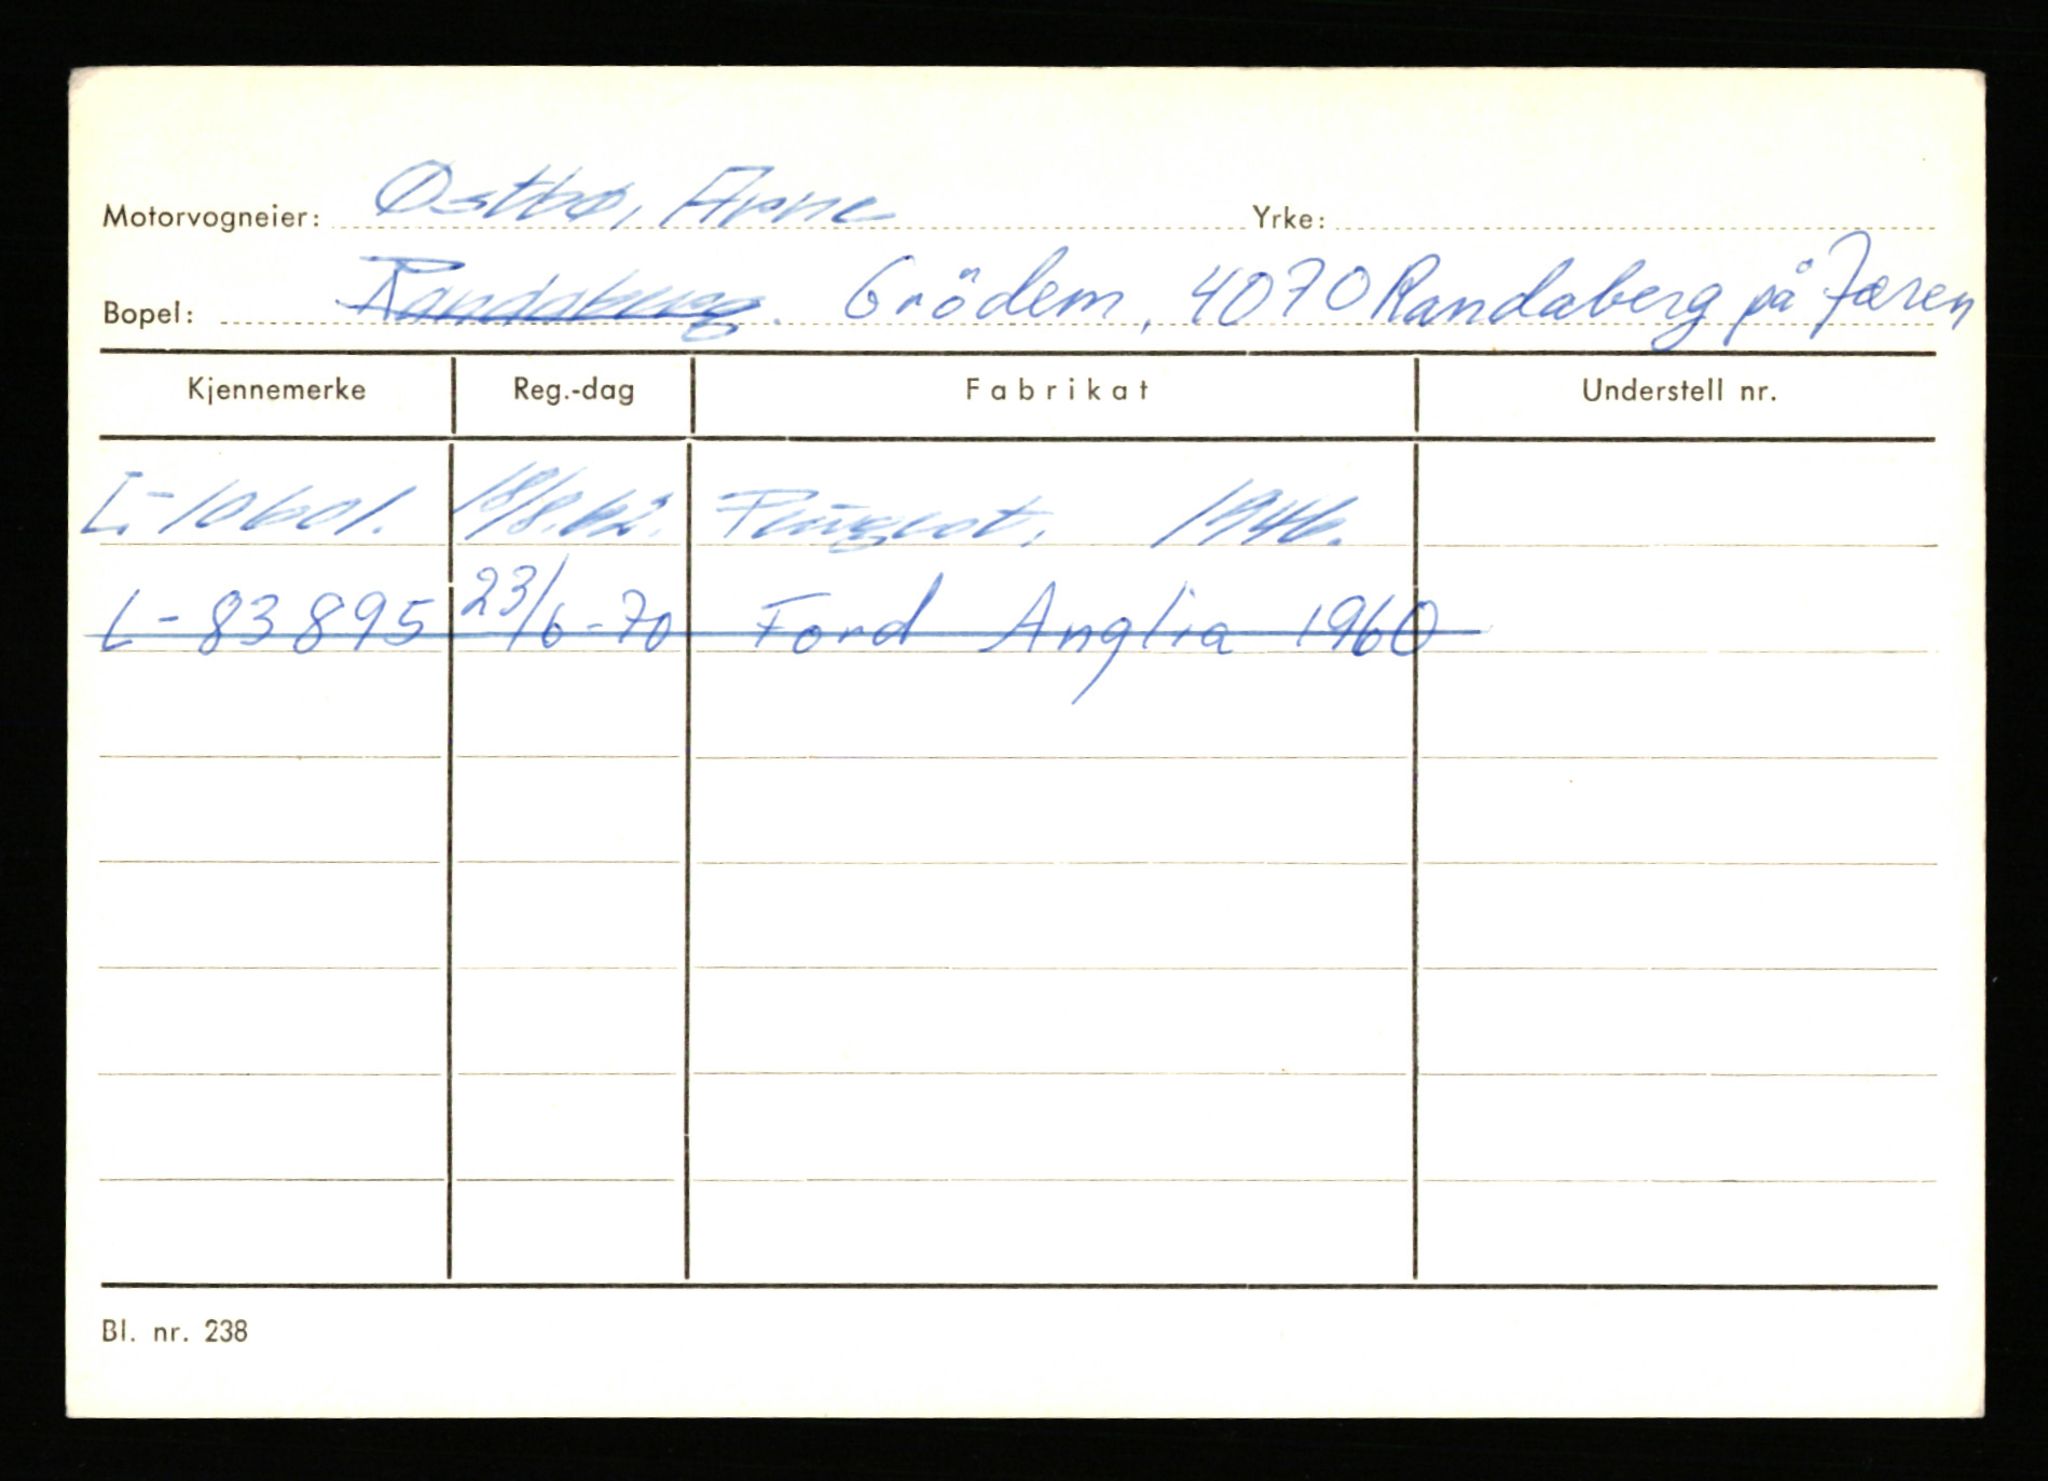 Motorvogneier: Østbø, Arne Yrke:
Bopel: Randaberg. Grödem, 4070 Randaberg på Jæren
Kjennemerke Reg.-dag Fabrikat Understell nr.
L-10601. 18/8.62. Peugeot. 1946.
L-83895 23/6-70 Ford Anglia 1960
Bl. nr. 238